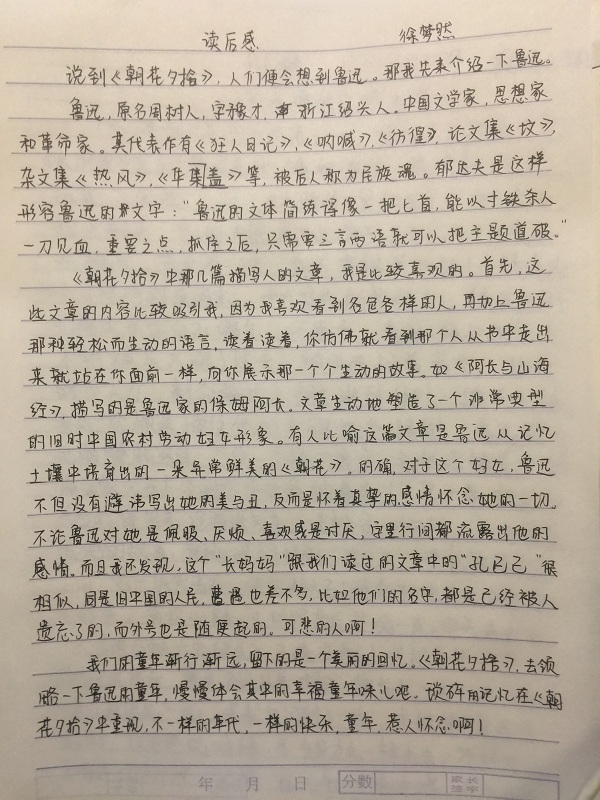 读后感 徐梦然
说到《朝花夕拾》，人们便会想到鲁迅。那我先来介绍一下鲁迅。
鲁迅，原名周树人，字豫才，浙江绍兴人。中国文学家，思想家
和革命家。其代表作有《狂人日记》，《呐喊》，《彷徨》，论文集《坟》，
杂文集《热风》，《华集盖》等，被后人称为民族魂。郁达夫是这样
形容鲁迅的文字：“鲁迅的文体简练得像一把匕首，能以寸铁杀人
一刀见血，重要之点，抓住之后，只需要三言两语就可以把主题道破。”
《朝花夕拾》中那几篇描写人的文章，我是比较喜欢的。首先，这
些文章的内容比较吸引我，因为我喜欢看到各色各样的人，再加上鲁迅
那种轻松而生动的语言，读着读着，你仿佛就看到那个人从书中走出
来就站在你面前一样，向你展示那一个个生动的故事。如《阿长与山海
经》，描写的是鲁迅家的保姆阿长。文章生动地塑造了一个非常典型
的旧时中国农村劳动妇女形象。有人比喻这篇文章是鲁迅从记忆
土壤中培育出的一朵异常鲜美的《朝花》，的确，对于这个妇女，鲁迅
不但没有避讳写出她的美与丑，反而是怀着真挚的感情怀念她的一切。
不论鲁迅对她是佩服、厌烦、喜欢或是讨厌，字里行间都流露出他的
感情。而且我还发现，这个“长妈妈”跟我们读过的文章中的“孔已己”很
相似，同是旧中国的人民，遭遇也差不多，比如他们的名字，都是已经被人
遗忘了的，而外号也是随便起的。可悲的人啊！
我们的童年渐行渐远，留下的是一个美丽的回忆。《朝花夕拾》，去领
略一下鲁迅的童年，慢慢体会其中的幸福童年味儿吧。琐碎的记忆在《朝
花夕拾》中重现，不一样的年代，一样的快乐，童年，惹人怀念啊！
年 月 日 分数 家长签字